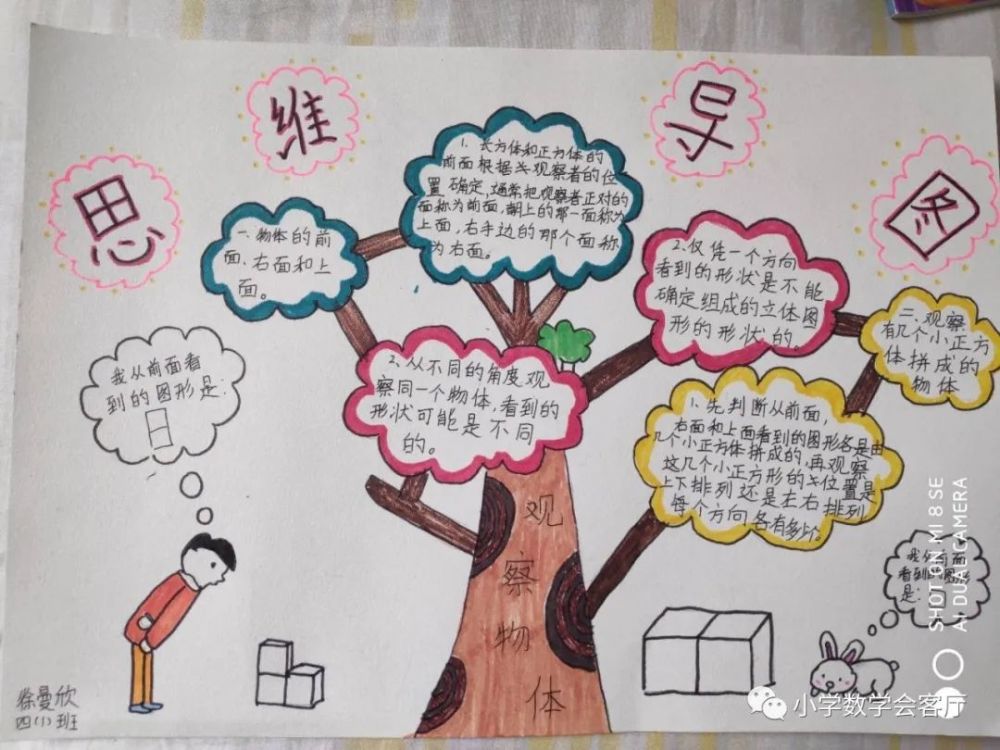 思维导图
一、物体的前
面、右面和上
面。
1、长方体和正方体的
前面根据观察者的位
置确定,通常把观察者正对的
面称为前面,朝上的那一面称为
上面,右手边的那个面称
为右面。
2、从不同的角度观
察同一个物体,看到的
形状可能是不同
的。
2、仅凭一个方向
看到的形状是不能
确定组成的立体图
形的形状的
二、观察
有几个小正方
体拼成的
物体
1、先判断从前面,
右面和上面看到的图形各是由
几个小正方体拼成的,再观察
这几个小正方形的位置是
上下排列还是左右排列
每个方向各有多少。
我从前面看
到的图形是:
我从前面
看到的图形
是:
观
察
物
体
徐曼欣
四(1)班
SHOT ON MI 8 SE
AI DUAL CAMERA
小学数学会客厅